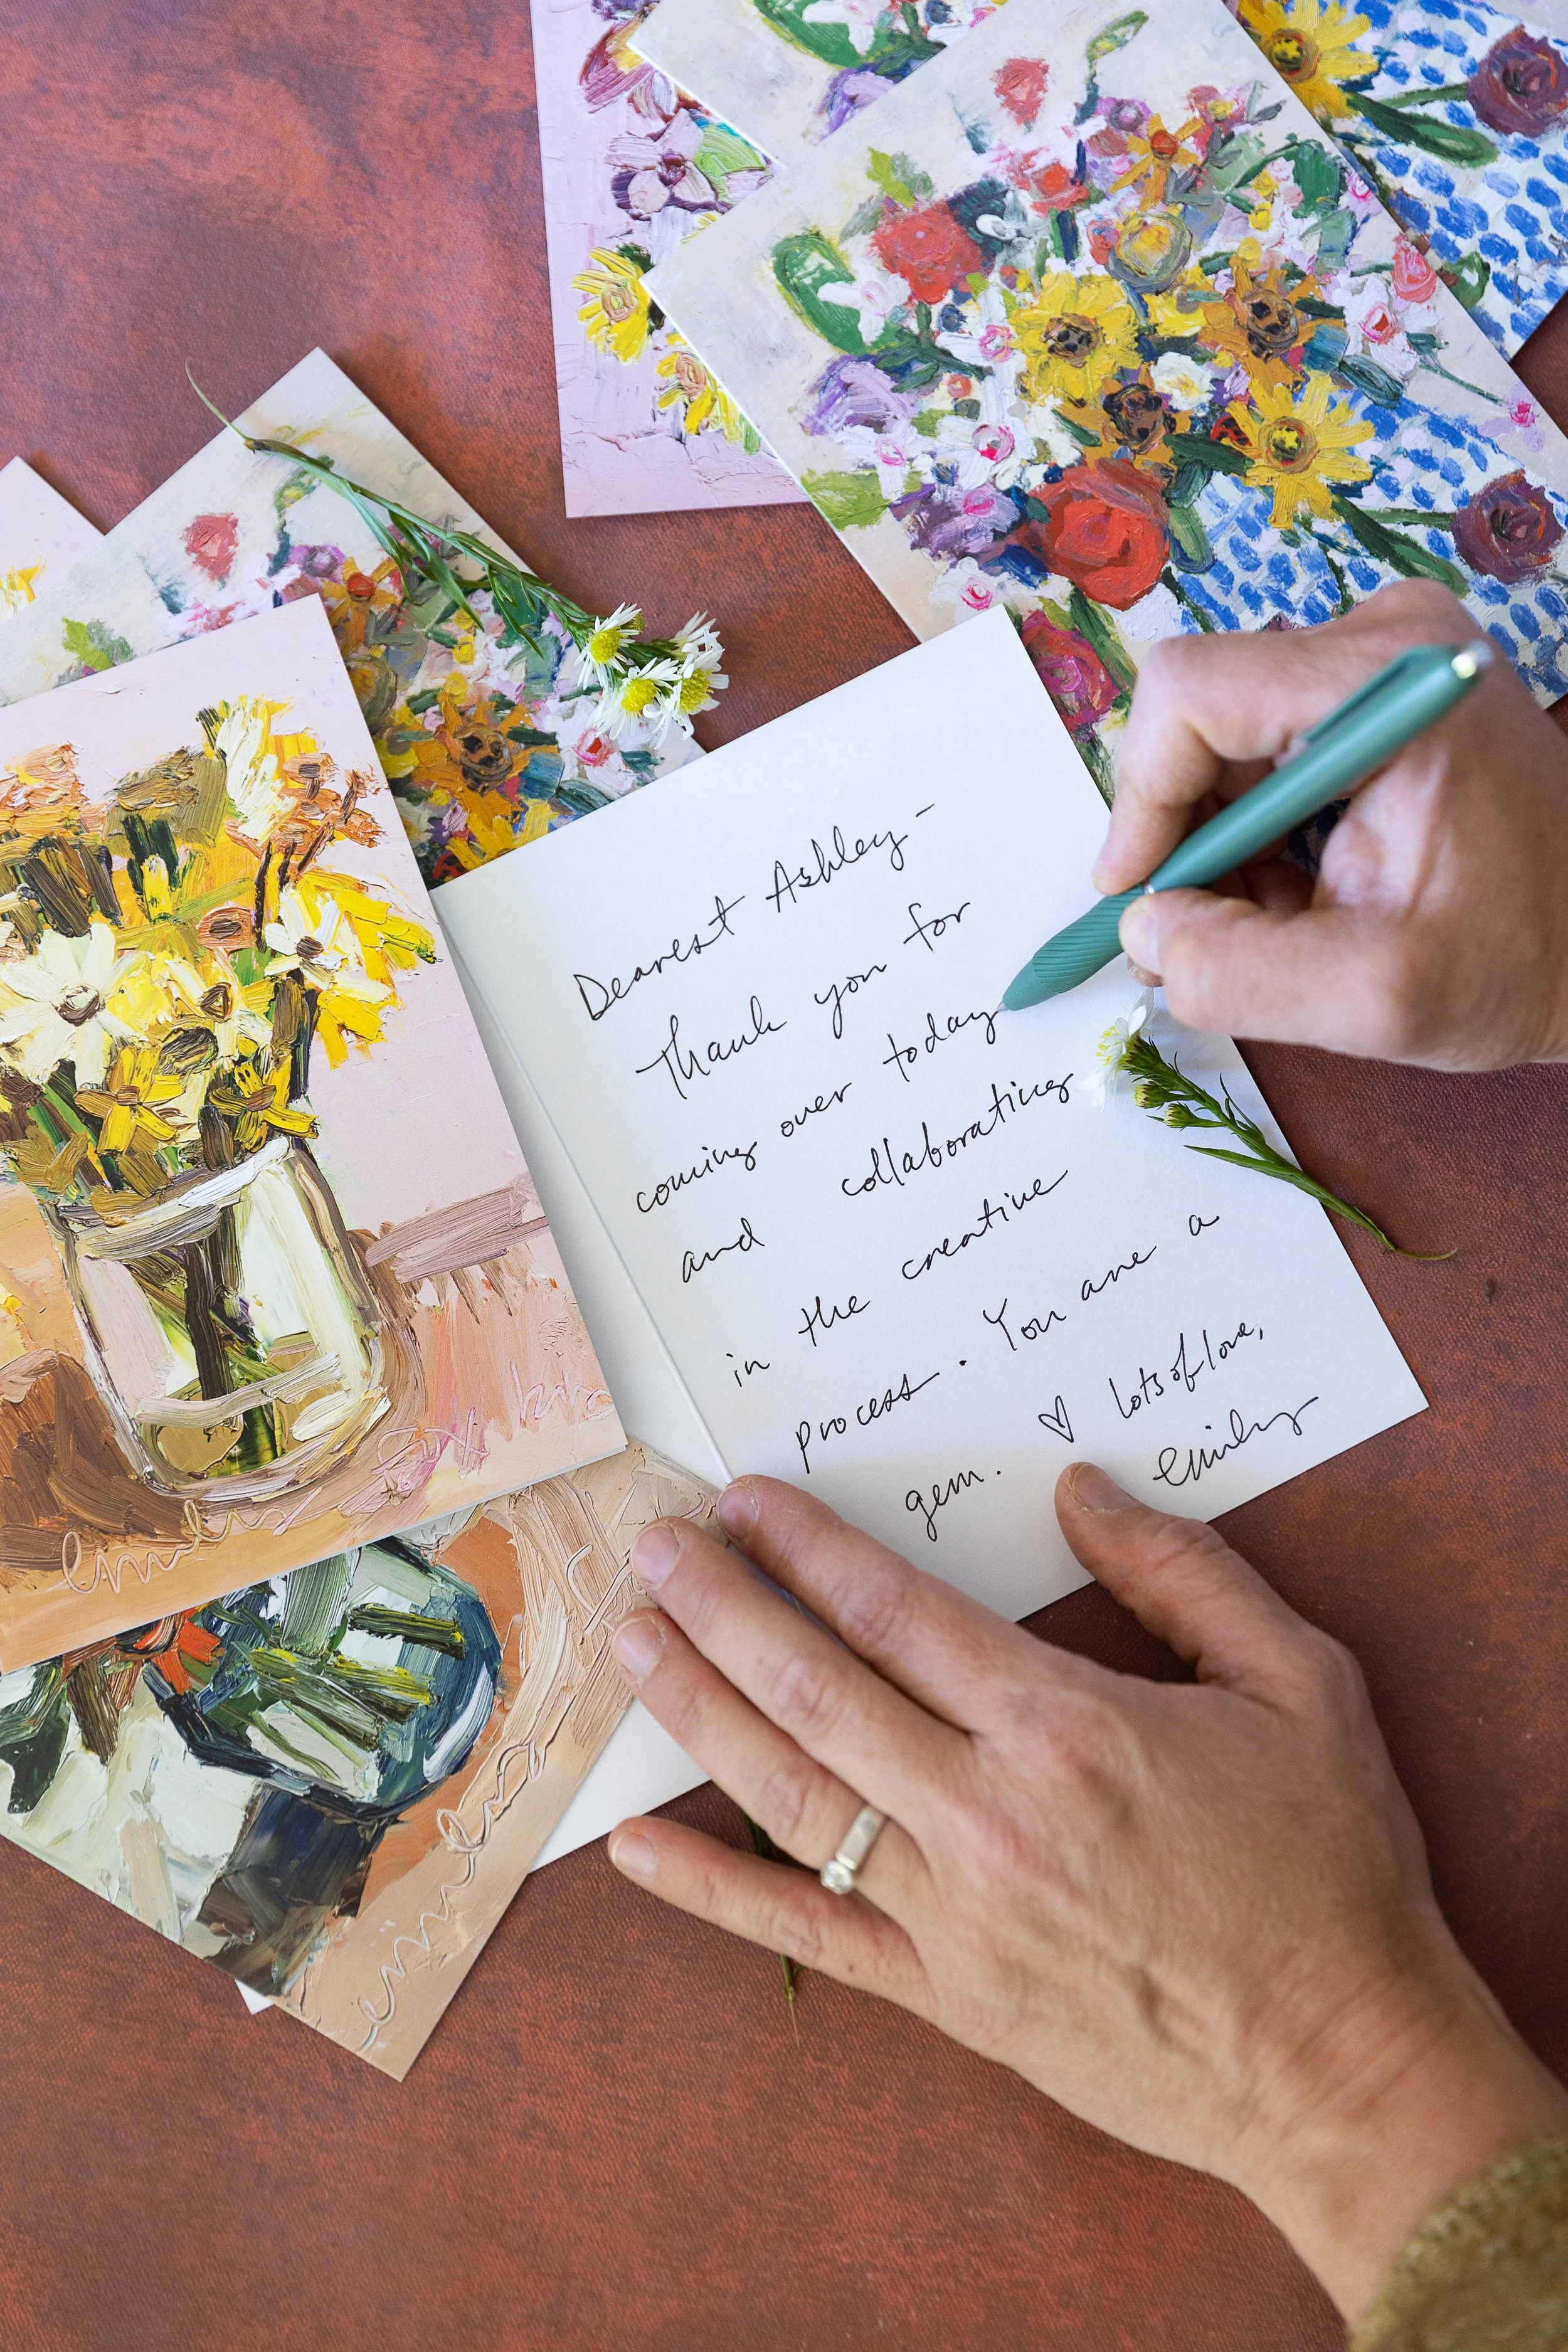 Dearest Ashley -
Thank you for
coming over today
and collaborating
in the creative
process. You are a
gem. ♡ lots of love,
emily
emily
emily